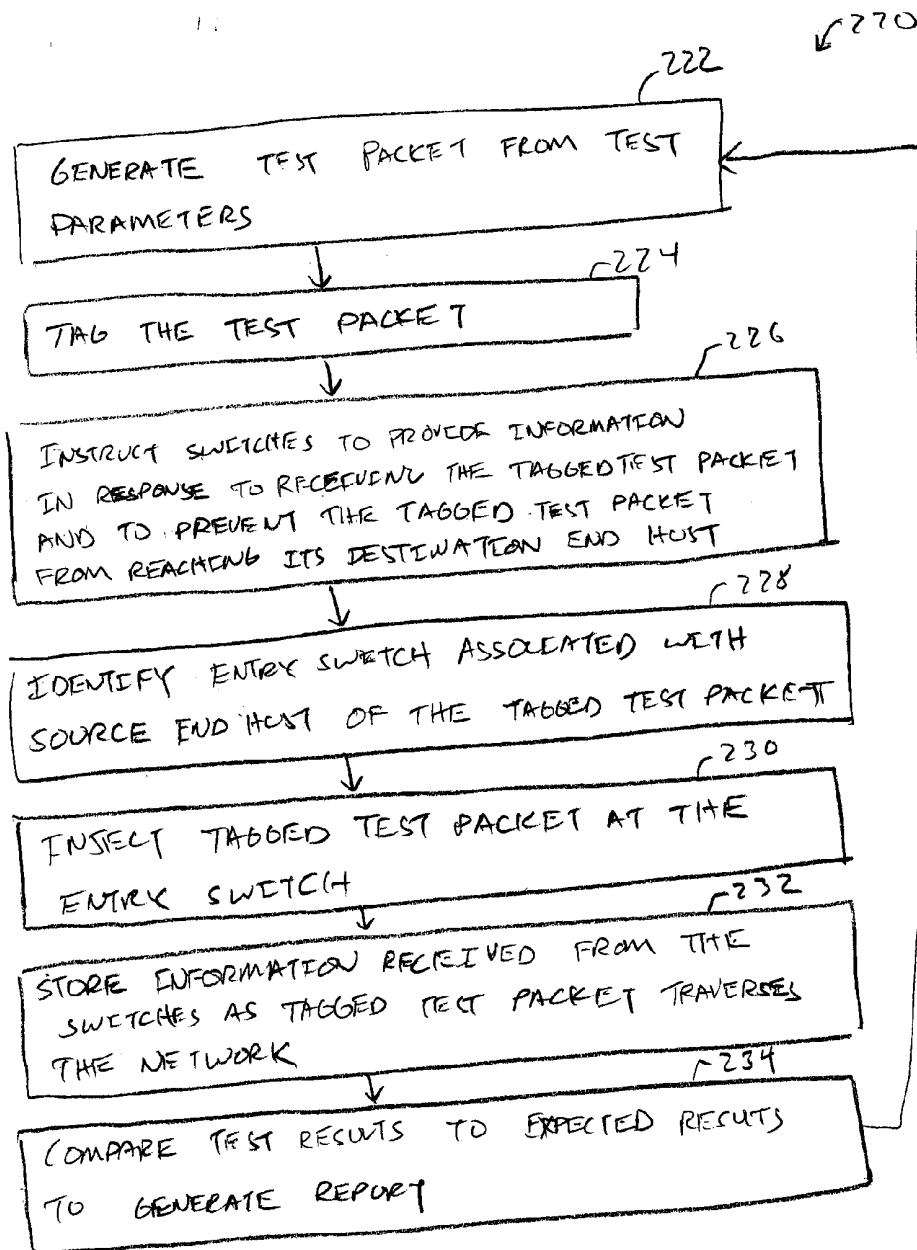 220
222
GENERATE TEST PACKET FROM TEST
PARAMETERS
224
TAG THE TEST PACKET
226
INSTRUCT SWITCHES TO PROVIDE INFORMATION
IN RESPONSE TO RECEIVING THE TAGGED TEST PACKET
AND TO PREVENT THE TAGGED TEST PACKET
FROM REACHING ITS DESTINATION END HOST
228
IDENTIFY ENTRY SWITCH ASSOCIATED WITH
SOURCE END HOST OF THE TAGGED TEST PACKET
230
INJECT TAGGED TEST PACKET AT THE
ENTRY SWITCH
232
STORE INFORMATION RECEIVED FROM THE
SWITCHES AS TAGGED TEST PACKET TRAVERSES
THE NETWORK
234
COMPARE TEST RESULTS TO EXPECTED RESULTS
TO GENERATE REPORT